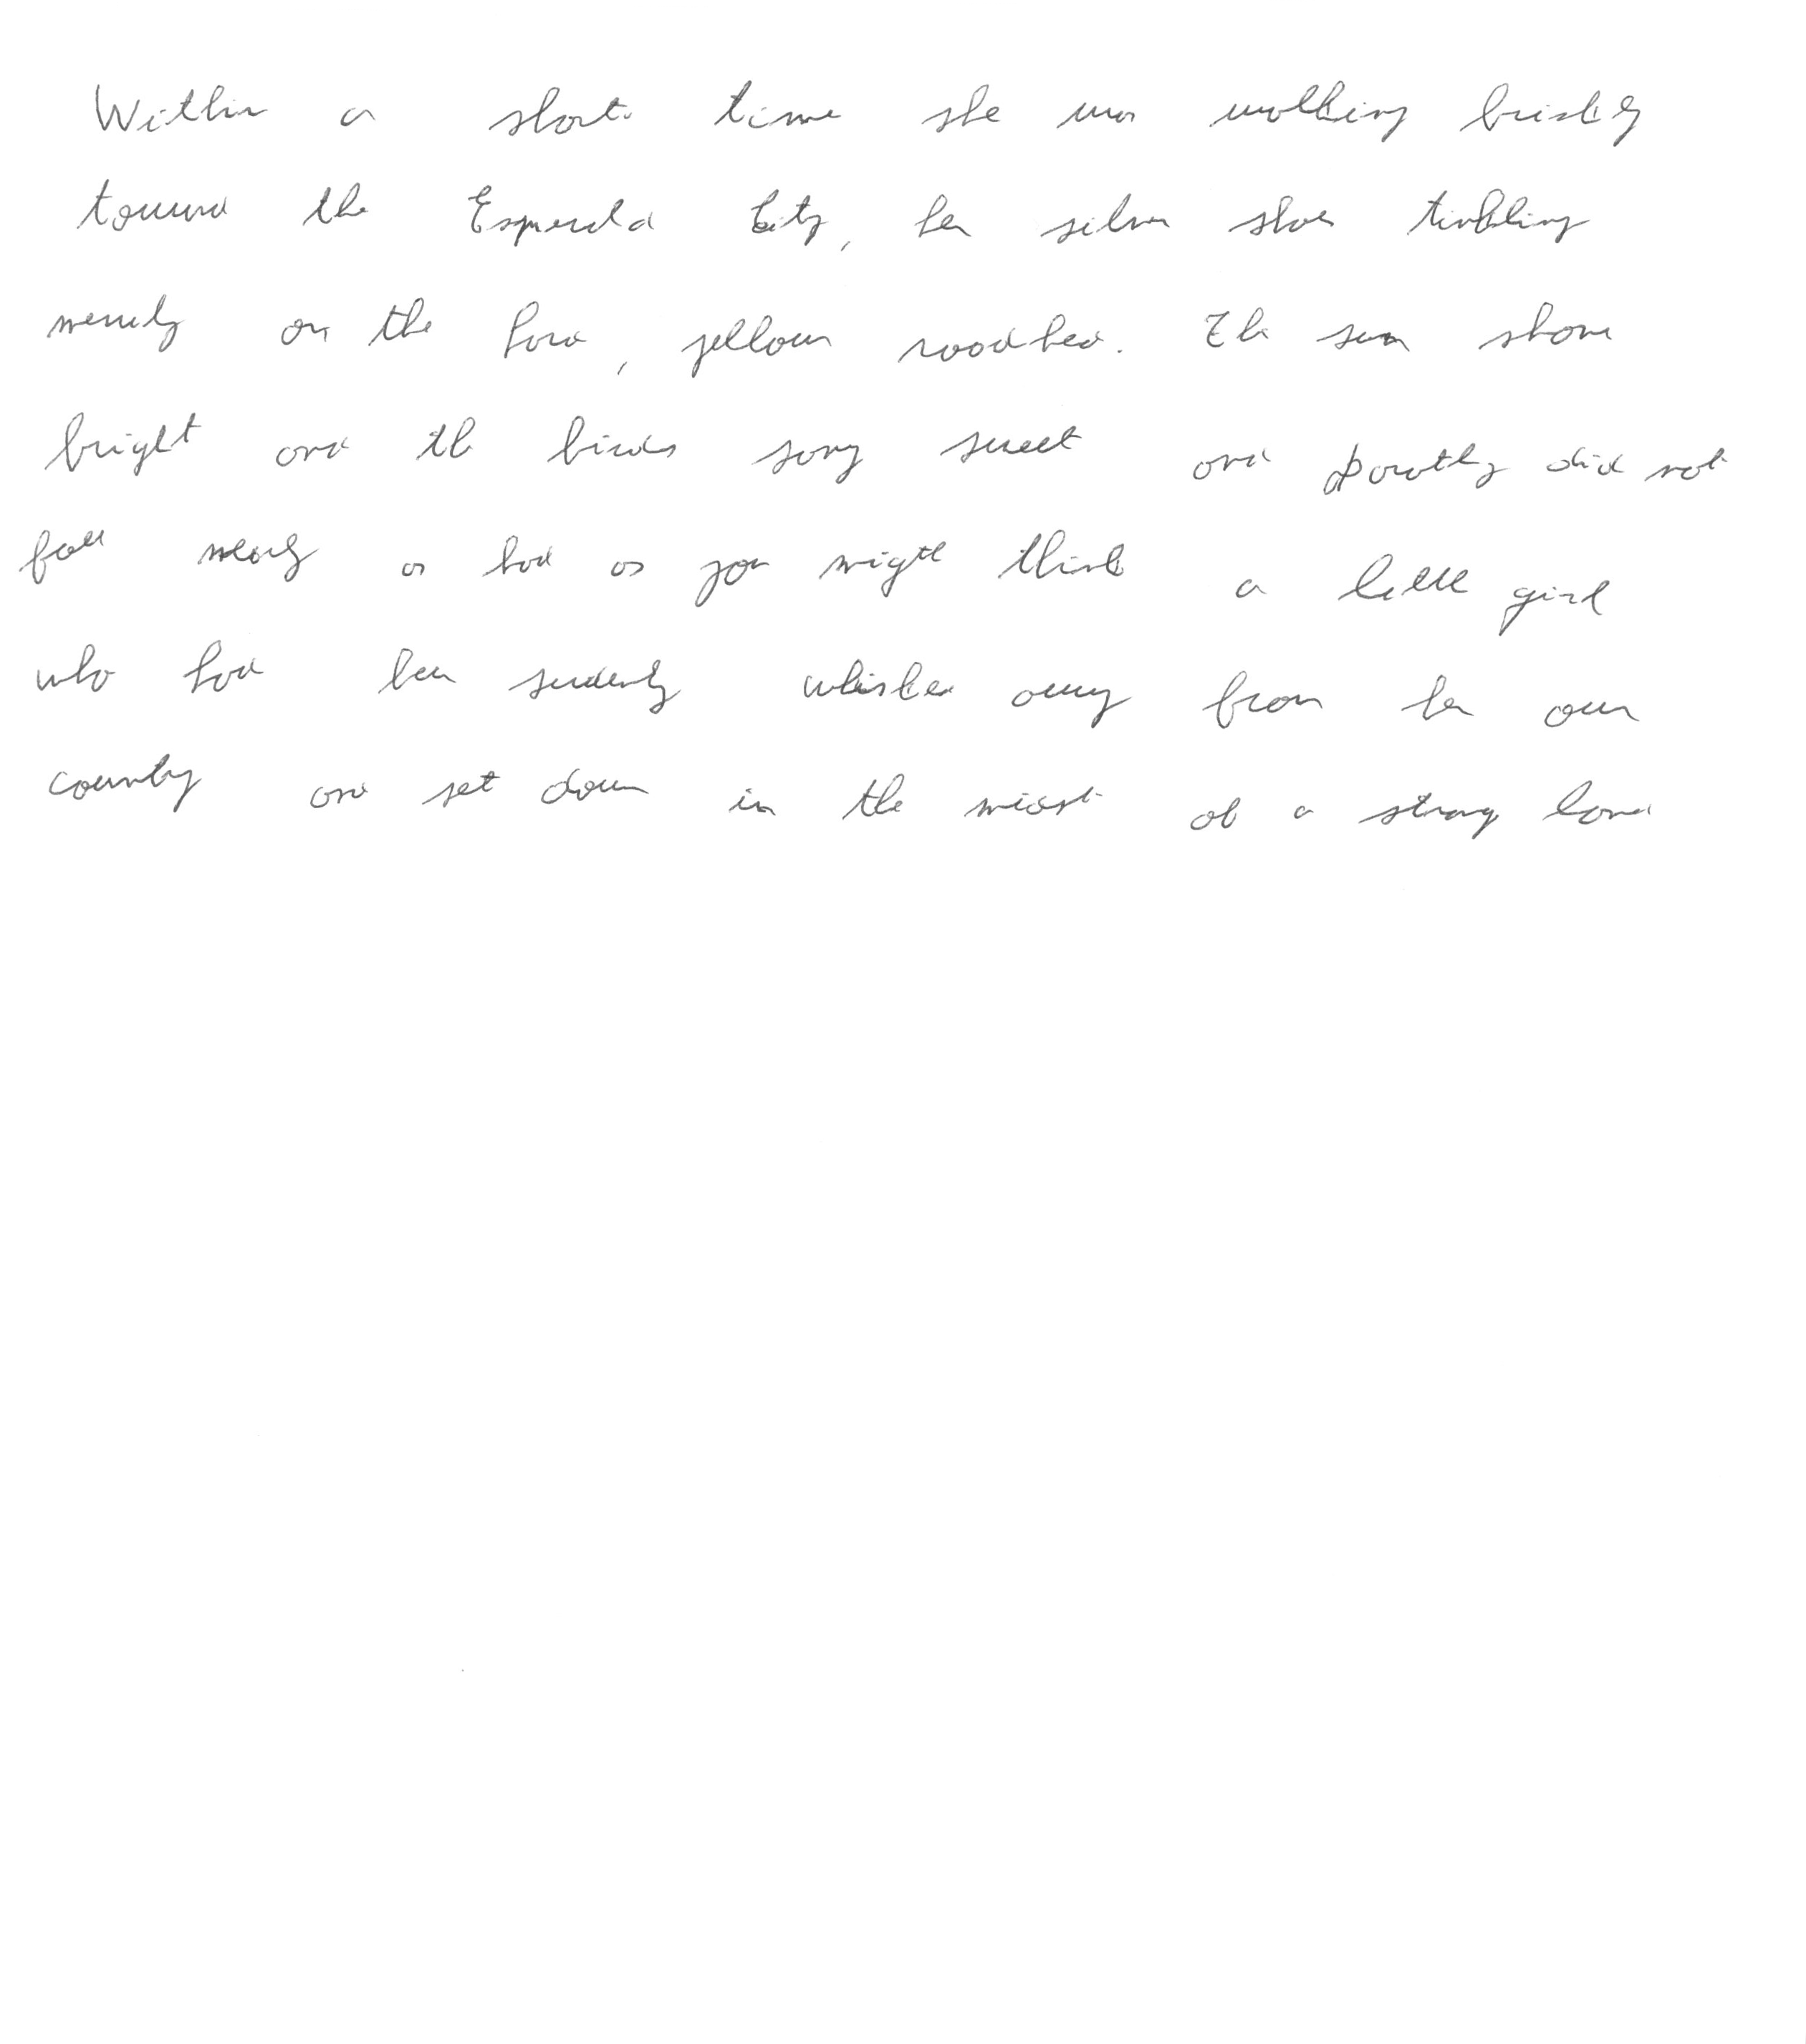 Within a short time she was walking briskly
toward the Esmerald City, her silver shoes tinkling
merrily on the hard, yellow roadbed. The sun shone
bright and the birds sang sweet and Dorothy did not
feel nearly as bad as you might think a little girl
who had been suddenly whisked away from her own
country and set down in the midst of a strange land